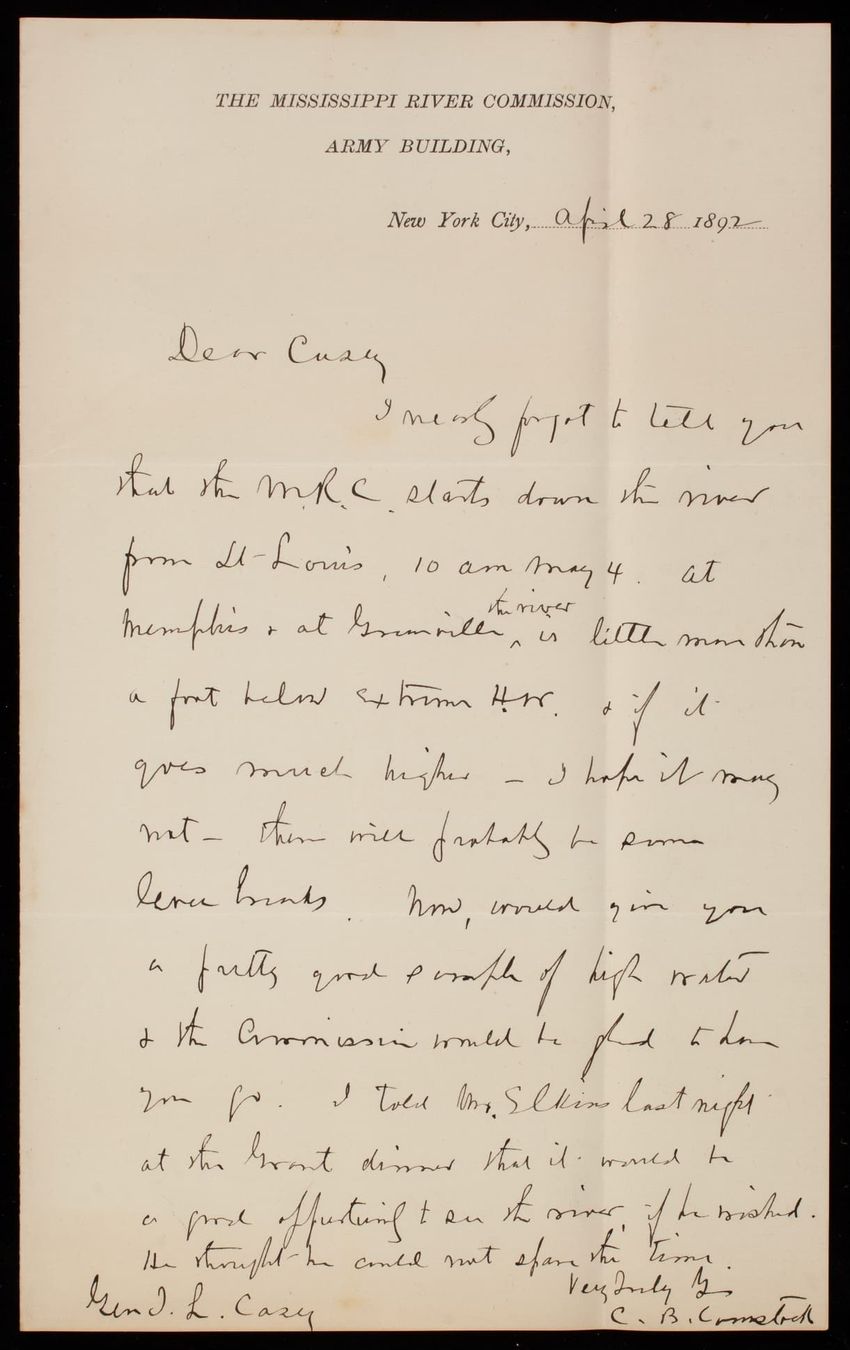 THE MISSISSIPPI RIVER COMMISSION,
ARMY BUILDING,
New York City, April 28 1892
Dear Casey
I nearly forgot to tell you
that the M.R.C. starts down the river
from St-Louis, 10 am May 4. At
Memphis & at Greenville ^ the river is little more than
a foot below extreme H.W. & if it
goes much higher - I hope it may
not - there will probably be some
levee breaks. Now, would give you
a pretty good sample of high water
& the Commission would be glad to have
you go. I told Mr. Elkins last night
at the Grant dinner that it would be
a good opportunity to see the river, if he wished.
He thought he could not spare the time.
Very Truly Yrs
Gen T. L. Casey
C. B. Comstock